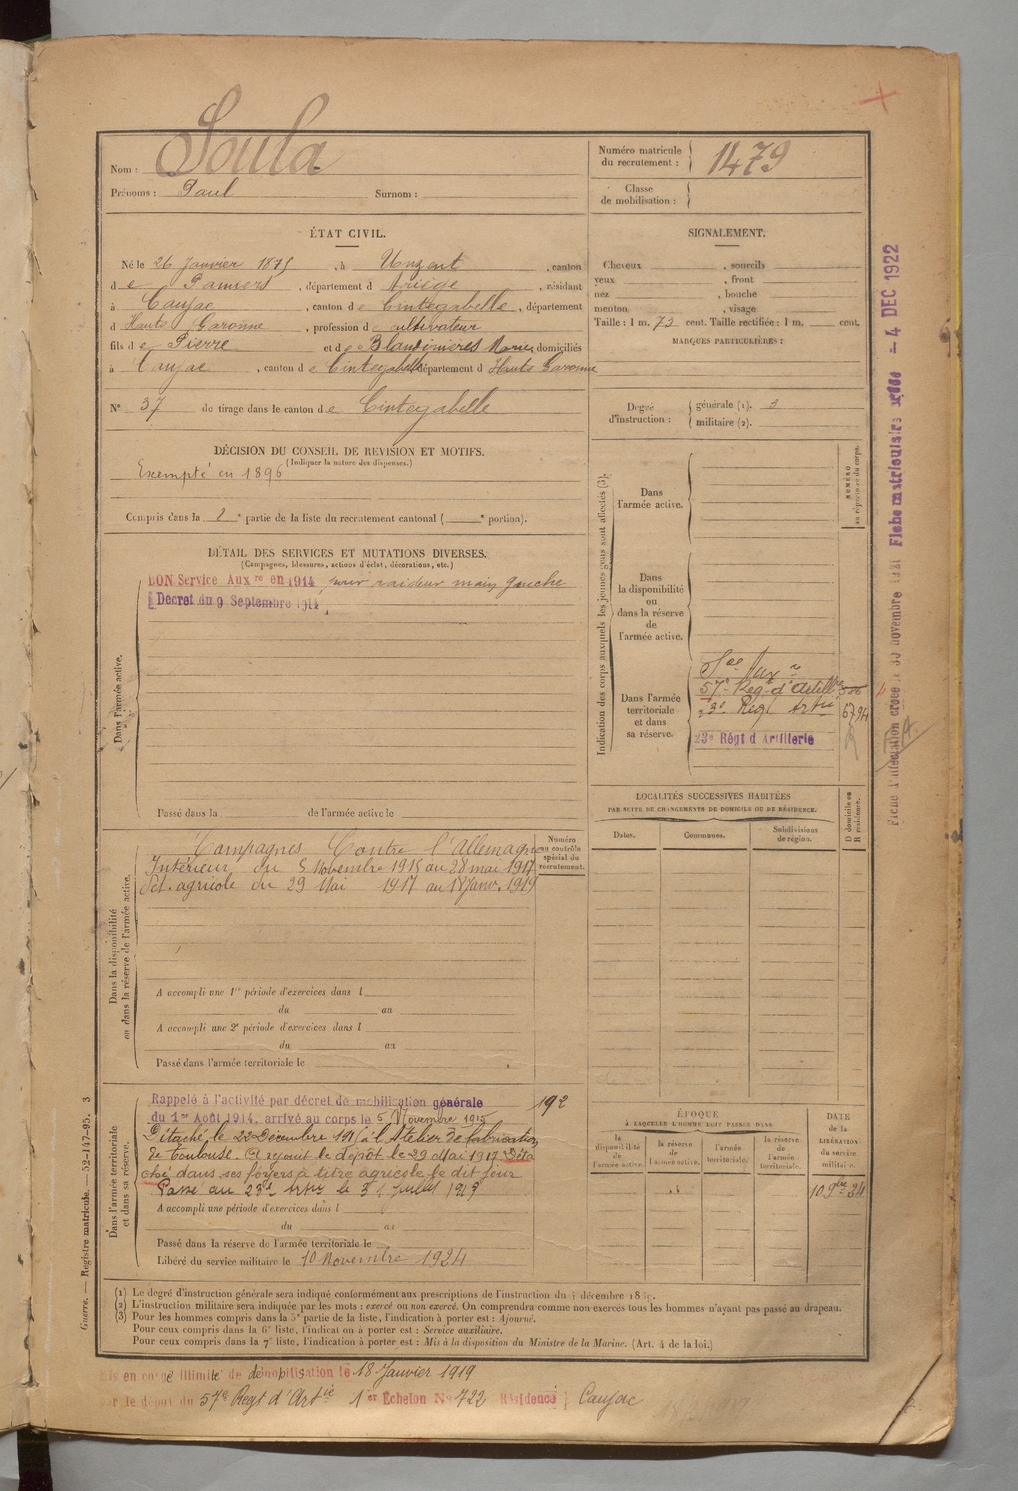 Nom : Soula
Prénoms : Paul Surnom :
Numéro matricule du recrutement : 1479
Classe de mobilisation :
ÉTAT CIVIL.
Né le 26 Janvier 1875, à Unzent, canton
de Pamiers, département d Ariège, résidant
à Caujac, canton de Cintegabelle, département
d Haute Garonne, profession de cultivateur
fils de Pierre et de Blandinières Marie, domiciliés
à Caujac, canton de Cintegabelle département d Haute Garonne
N° 37 de tirage dans le canton de Cintegabelle
SIGNALEMENT.
Cheveux , sourcils
yeux , front
nez , bouche
menton , visage
Taille : 1 m. 73 cent. Taille rectifiée : 1 m. cent.
MARQUES PARTICULIÈRES :
Degré d'instruction : générale (1). 3
militaire (2).
DÉCISION DU CONSEIL DE REVISION ET MOTIFS.
(Indiquer la nature des dispenses.)
Exempté en 1896
Compris dans la 2e partie de la liste du recrutement cantonal ( e portion).
DÉTAIL DES SERVICES ET MUTATIONS DIVERSES.
(Campagnes, blessures, actions d'éclat, décorations, etc.)
Dans l'armée active.
BON Service Aux re en 1914 pour raideur main gauche
Décret du 9 Septembre 1914
Passé dans la de l'armée active le
Indication des corps auxquels les jeunes gens sont affectés (3).
NUMÉRO au répertoire du corps.
Dans l'armée active.
Dans la disponibilité ou dans la réserve de l'armée active.
Dans l'armée territoriale et dans sa réserve.
57e Reg. d'Artill
Reg. Artie 6794
23e Régt d Artillerie
LOCALITÉS SUCCESSIVES HABITÉES
PAR SUITE DE CHANGEMENTS DE DOMICILE OU DE RÉSIDENCE.
Dates. Communes. Subdivisions de région. D domicile ou R résidence.
Dans la disponibilité ou dans la réserve de l'armée active.
Numéro au contrôle spécial du recrutement.
Campagnes Contre l'Allemagne
Intérieur du 5 Novembre 1915 au 28 mai 1917
Dét. agricole du 29 Mai 1917 au 18 Janv. 1919
A accompli une 1re période d'exercices dans l
du au
A accompli une 2e période d'exercices dans l
du au
Passé dans l'armée territoriale le
Dans l'armée territoriale et dans sa réserve.
192
Rappelé à l'activité par décret de mobilisation générale
du 1er Août 1914, arrivé au corps le 5 Novembre 1915
Détaché le 22 Décembre 191 à l'Atelier de fabrication
de Toulouse. A rejoint le dépôt le 29 Mai 1917. Déta
ché dans ses foyers à titre agricole le dit jour
Passé au 23e Artie le 3 Juillet 1919
A accompli une période d'exercices dans l
du au
Passé dans la réserve de l'armée territoriale le
Libéré du service militaire le 10 Novembre 1924
ÉPOQUE
À LAQUELLE L'HOMME DOIT PASSER DANS
la disponibilité de l'armée active. la réserve de l'armée active. l'armée territoriale. la réserve de l'armée territoriale.
DATE DE LA LIBÉRATION du service militaire.
10 9bre 24
(1) Le degré d'instruction générale sera indiqué conformément aux prescriptions de l'instruction du décembre 18
(2) L'instruction militaire sera indiquée par les mots : exercé ou non exercé. On comprendra comme non exercés tous les hommes n'ayant pas passé au drapeau.
(3) Pour les hommes compris dans la 5e partie de la liste, l'indication à porter est : Ajourné.
Pour ceux compris dans la 6e liste, l'indication à porter est : Service auxiliaire.
Pour ceux compris dans la 7e liste, l'indication à porter est : Mis à la disposition du Ministre de la Marine. (Art. 4 de la loi.)
is en congé illimité de démobilisation le 18 Janvier 1919
r le dépôt du 57e Regt d'Artie 1er Echelon No 722 Résidence Caujac
Guerre. — Registre matricule. — 52-147-95. 3
Fiche matriculaire – 4 DEC 1922
Fiche d'affectation 30 novembre